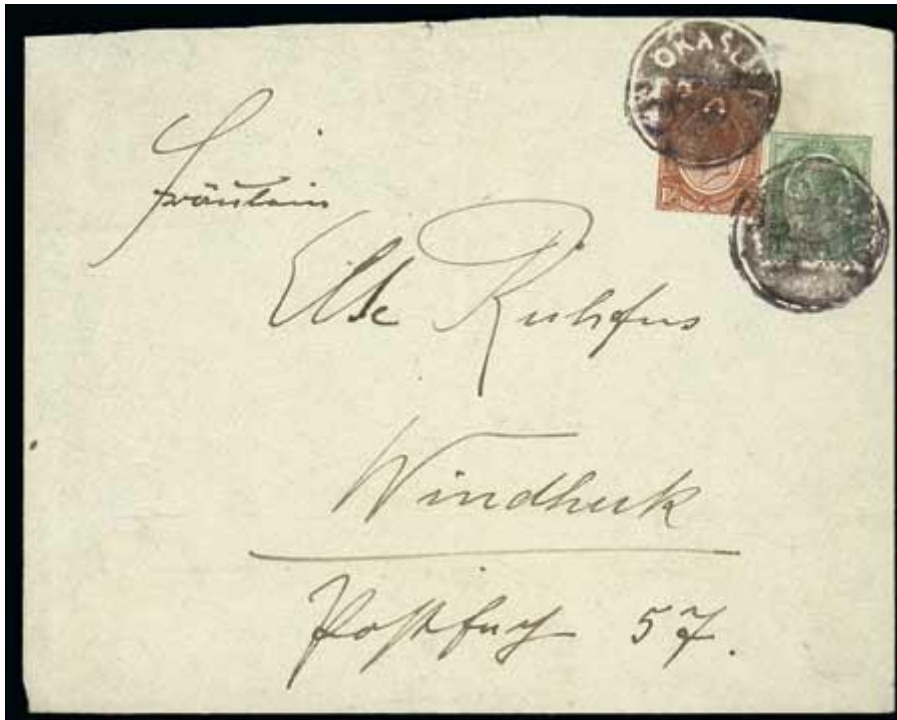 OKASU
Fräulein
Else Ruhfus
Windhuk
Postfach 57.